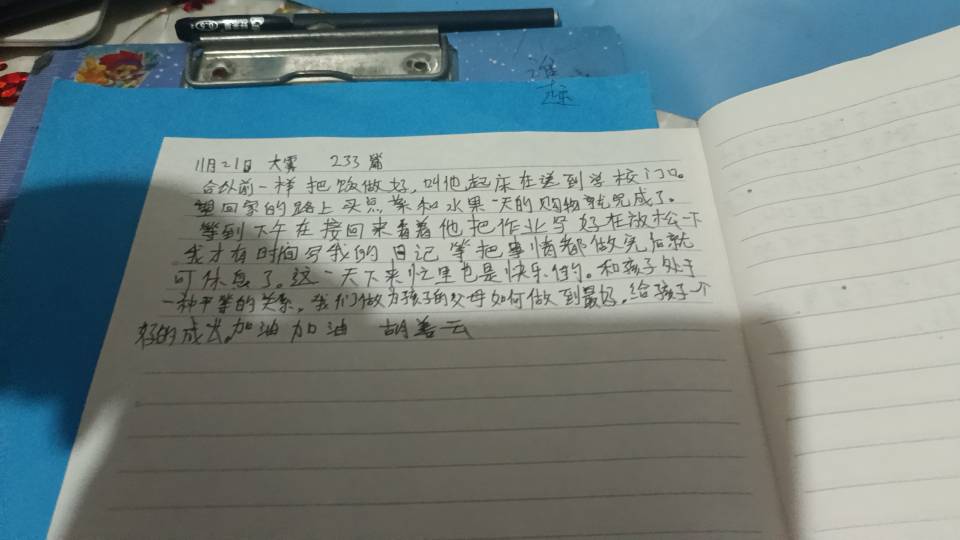 谁
11月21日 大雾 233篇
合以前一样把饭做好,叫他起床在送到学校门口。
回家的路上买点菜和水果一天的购物就完成了。
等到下午在接回来看着他把作业写好在放松一下
我才有时间写我的日记等把事情都做完后就
可休息了。这一天下来忙里也是快乐的。和孩子处于
一种平等的关系。我们做为孩子的父母如何做到最好,给孩子一个
好的成长。加油加油 胡善云